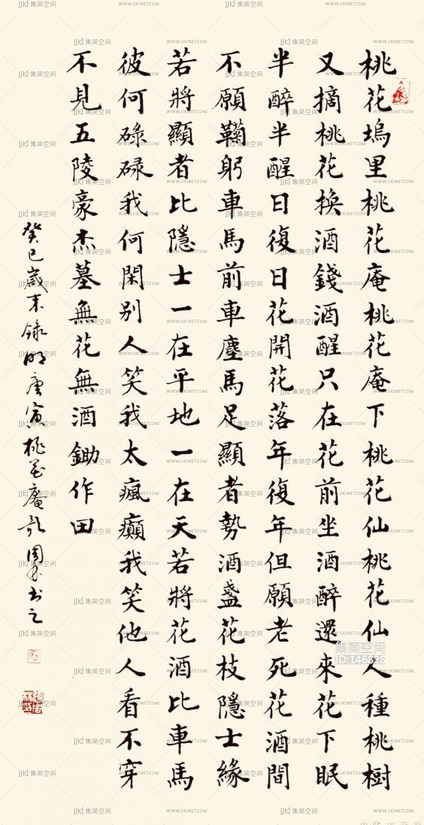 桃花塢里桃花庵桃花庵下桃花仙桃花仙人種桃樹
又摘桃花換酒錢酒醒只在花前坐酒醉還來花下眠
半醉半醒日復日花開花落年復年但願老死花酒間
不願鞠躬車馬前車塵馬足顯者勢酒盞花枝隱士緣
若將顯者比隱士一在平地一在天若將花酒比車馬
彼何碌碌我何閑別人笑我太瘋癲我笑他人看不穿
不見五陵豪杰墓無花無酒鋤作田
癸巳歲末錄明唐寅桃花庵歌周書之
集简空间